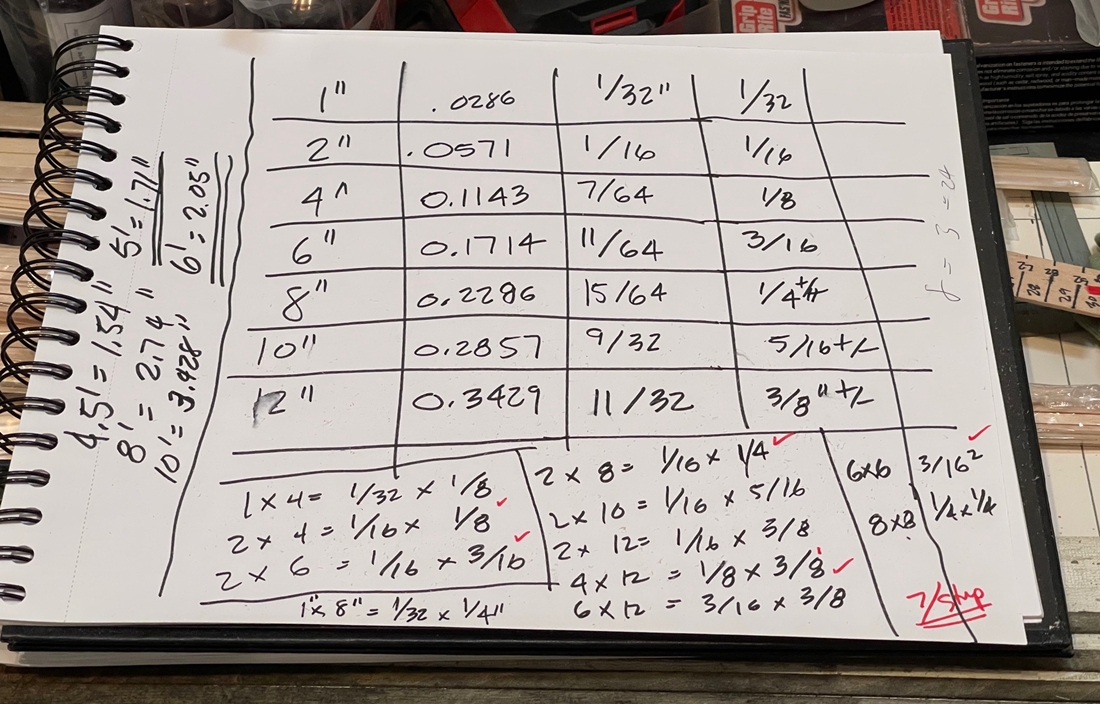 1" .0286 1/32" 1/32
2" .0571 1/16 1/16
4" 0.1143 7/64 1/8
6" 0.1714 11/64 3/16
8" 0.2286 15/64 1/4 +/-
10" 0.2857 9/32 5/16 +/-
12" 0.3429 11/32 3/8" +/-
4.5' = 1.54"
5' = 1.71"
8' = 2.74"
6' = 2.05"
10' = 3.428"
1 x 4 = 1/32 x 1/8
2 x 4 = 1/16 x 1/8 ✓
2 x 6 = 1/16 x 3/16 ✓
1" x 8" = 1/32 x 1/4"
2 x 8 = 1/16 x 1/4 ✓
2 x 10 = 1/16 x 5/16
2 x 12 = 1/16 x 3/8
4 x 12 = 1/8 x 3/8 ✓
6 x 12 = 3/16 x 3/8
6x6 3/16² ✓
8x8 1/4 x 1/4
= 3 = 24
Grip
Rite
27 28
28 29 30